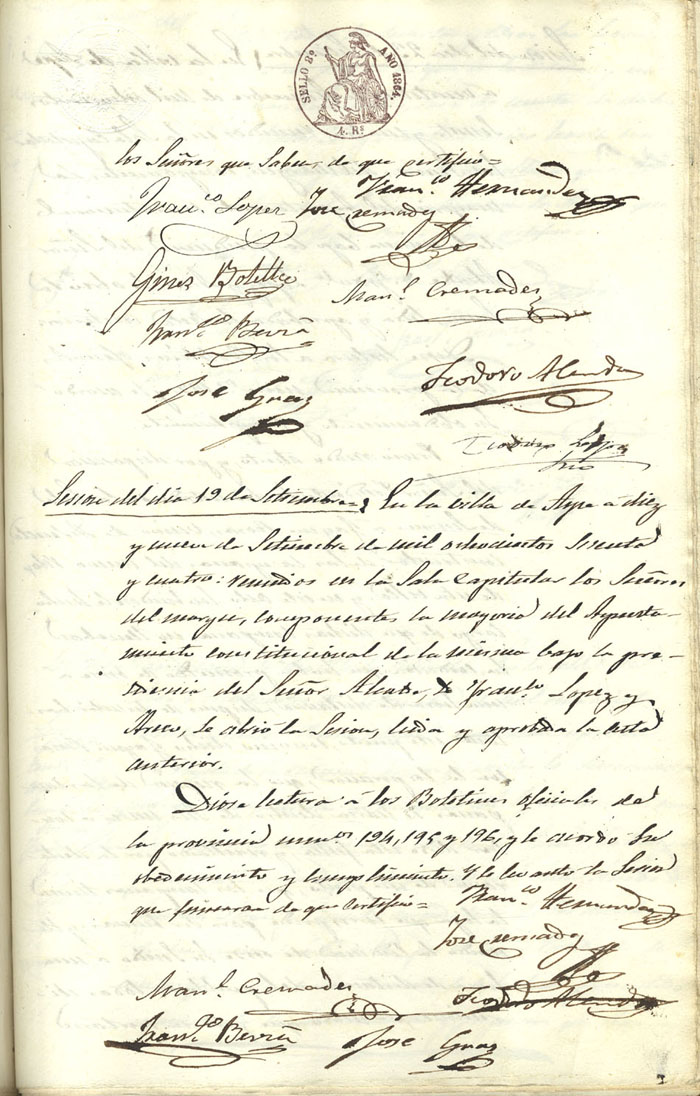 SELLO 8º AÑO 1864.
4. Rs
los Señores que saben, de que certifico=
Franco Lopez Jose Cremades Franco Hernandez
Gines Botella
Manl Cremades
Franco Berna
Jose Gras
Teodoro Alenda
Teodoro
Srio
Sesion del dia 19 de Setiembre, En la villa de Aspe a diez
y nueve de Setiembre de mil ochocientos sesenta
y cuatro: reunidos en la Sala Capitular los Señores
del margen, componentes la mayoria del Ayunta-
miento constitucional de la misma bajo la pre-
sidencia del Señor Alcalde, D. Franco Lopez y
se abrió la Sesion, leida y aprobada la acta
anterior.
Diose lectura á los Boletines oficiales de
la provincia numos 194, 195 y 196, y se acordo su
obedecimiento y cumplimiento. Y se levanto la Sesion
que firmaran de que certifico= Franco Hernandez
Jose Cremades
Manl Cremades
Teodoro Alenda
Franco Berna Jose Gras